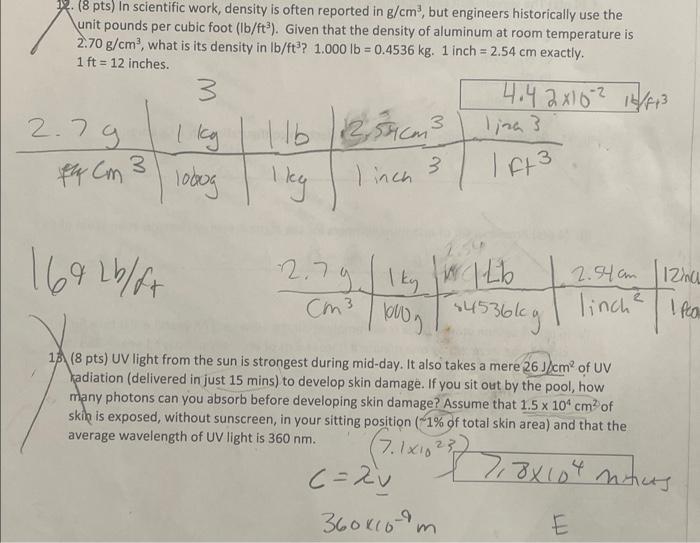 12. (8 pts) In scientific work, density is often reported in g/cm³, but engineers historically use the
unit pounds per cubic foot (lb/ft³). Given that the density of aluminum at room temperature is
2.70 g/cm³, what is its density in lb/ft³? 1.000 lb = 0.4536 kg. 1 inch = 2.54 cm exactly.
1 ft = 12 inches.
4.42x10⁻² lb/ft³
3
2.7g | 1 kg | 1 lb | 2.54cm³ | 1 inch 3
cm³ | 1000g | 1 kg | 1 inch 3 | 1 ft³
2.54
169 Lb/ft
2.7g | 1kg | 1Lb | 2.54 cm | 12 inch
cm³ | 1000g | .4536kg | 1inch² | 1 foo
13. (8 pts) UV light from the sun is strongest during mid-day. It also takes a mere 26 J/cm² of UV
radiation (delivered in just 15 mins) to develop skin damage. If you sit out by the pool, how
many photons can you absorb before developing skin damage? Assume that 1.5 x 10⁴ cm² of
skin is exposed, without sunscreen, in your sitting position (~1% of total skin area) and that the
average wavelength of UV light is 360 nm.
(7.1x10²³)
7.8x10⁴
C = λν
360x10⁻⁹m
E